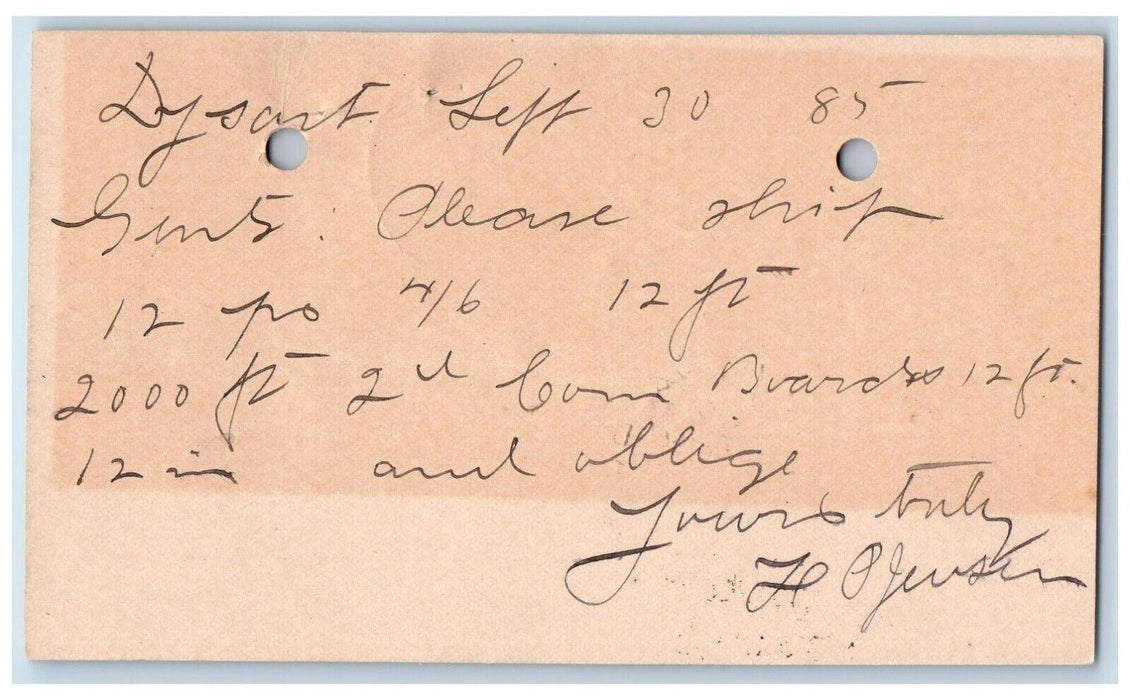 Dysart Sept 30 85
Gents: Please ship
12 ps 4/6 12 ft
2000 ft 2d Com Boards 12 ft.
12 in and oblige
Yours truly
H P Jensen